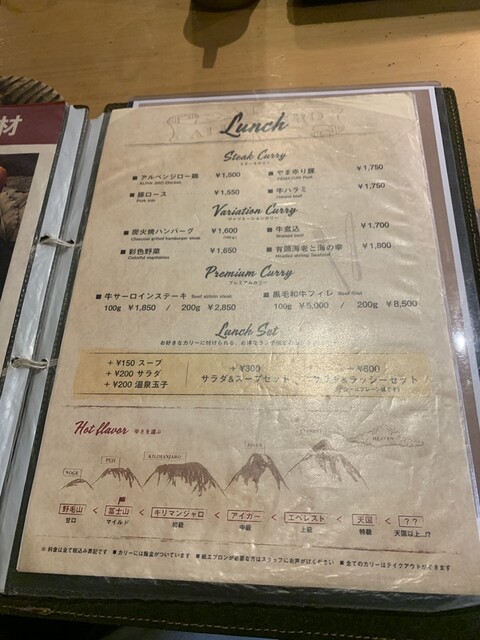 材
Lunch
Steak Curry
■ アルペンジロー鶏 ¥1,500
ALPIN JIRO Chicken
■ やまゆり豚 ¥1,750
YAMAYURI Pork
■ 豚ロース ¥1,550
Pork loin
■ 牛ハラミ ¥1,750
Variation Curry
ヴァリエーションカリー
■ 炭火焼ハンバーグ ¥1,600
Charcoal grilled hamburger steak
■ 牛煮込 ¥1,700
Braised beef
■ 彩色野菜 ¥1,650
Colorful vegetables
■ 有頭海老と海の幸 ¥1,800
Headed shrimp Seafood
Premium Curry
プレミアムカリー
■ 牛サーロインステーキ Beef sirloin steak
100g ¥1,850 / 200g ¥2,850
■ 黒毛和牛フィレ Beef fillet
100g ¥5,000 / 200g ¥8,500
Lunch Set
+ ¥150 スープ
+ ¥200 サラダ
+ ¥200 温泉玉子
+ ¥300
サラダ&スープセット
+ ¥600
サラダ&ラッシーセット
Hot flavor 辛さを選ぶ
NOGE
FUJI
KILIMANJARO
EIGER
EVEREST
HEAVEN
野毛山 < 富士山 < キリマンジャロ < アイガー < エベレスト < 天国 < ??
甘口 マイルド 初級 中級 上級 特級 天国以上!?
※ 料金は全て税込み表記です ■ カリーには御飯がついています ■ 紙エプロンが必要な方はスタッフにお声がけください ■ 全てのカリーはテイクアウトができます